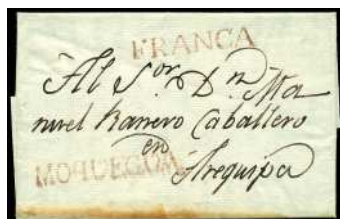 FRANCA
Al S.or D.n Ma
nuel Barrero Caballero
en
MOQUEGUA Arequipa